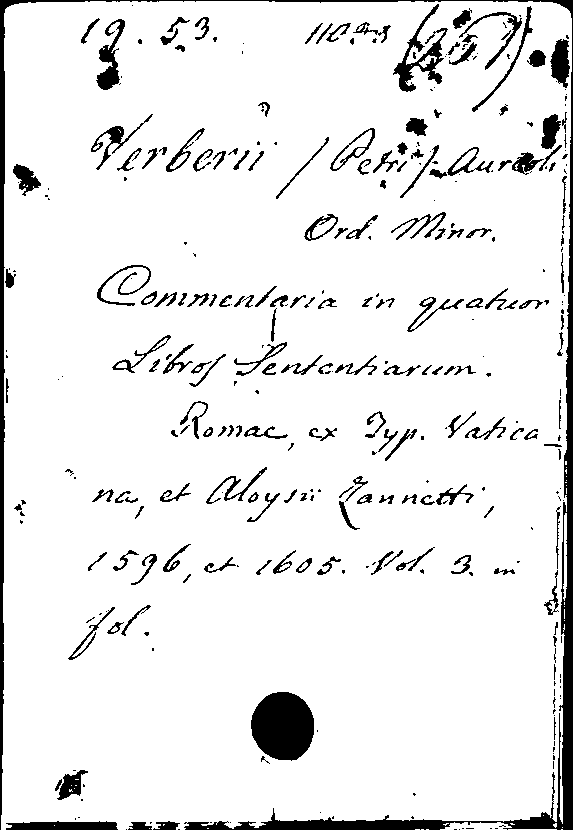 19. 53.
Verberii / Petri / Aureoli
Ord. Minor.
Commentaria in quatuor
Libros Sententiarum.
Romae, ex Typ. Vatica_
na, et Aloysii Zannetti,
1596, et 1605. Vol. 3. in
fol.